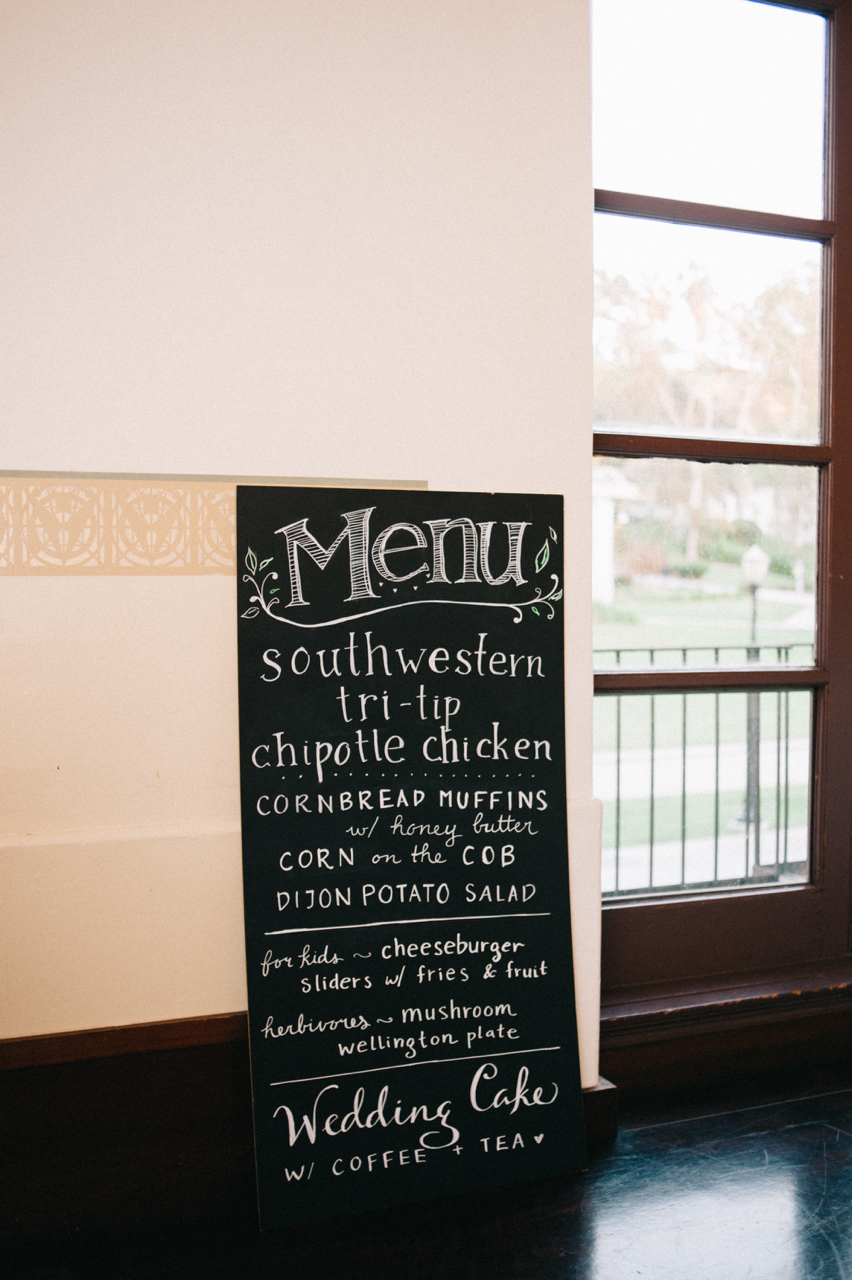 Menu
southwestern
tri-tip
chipotle chicken
CORNBREAD MUFFINS
w/ honey butter
CORN on the COB
DIJON POTATO SALAD
for kids ~ cheeseburger
sliders w/ fries & fruit
herbivores ~ mushroom
wellington plate
Wedding Cake
W/ COFFEE + TEA ♥